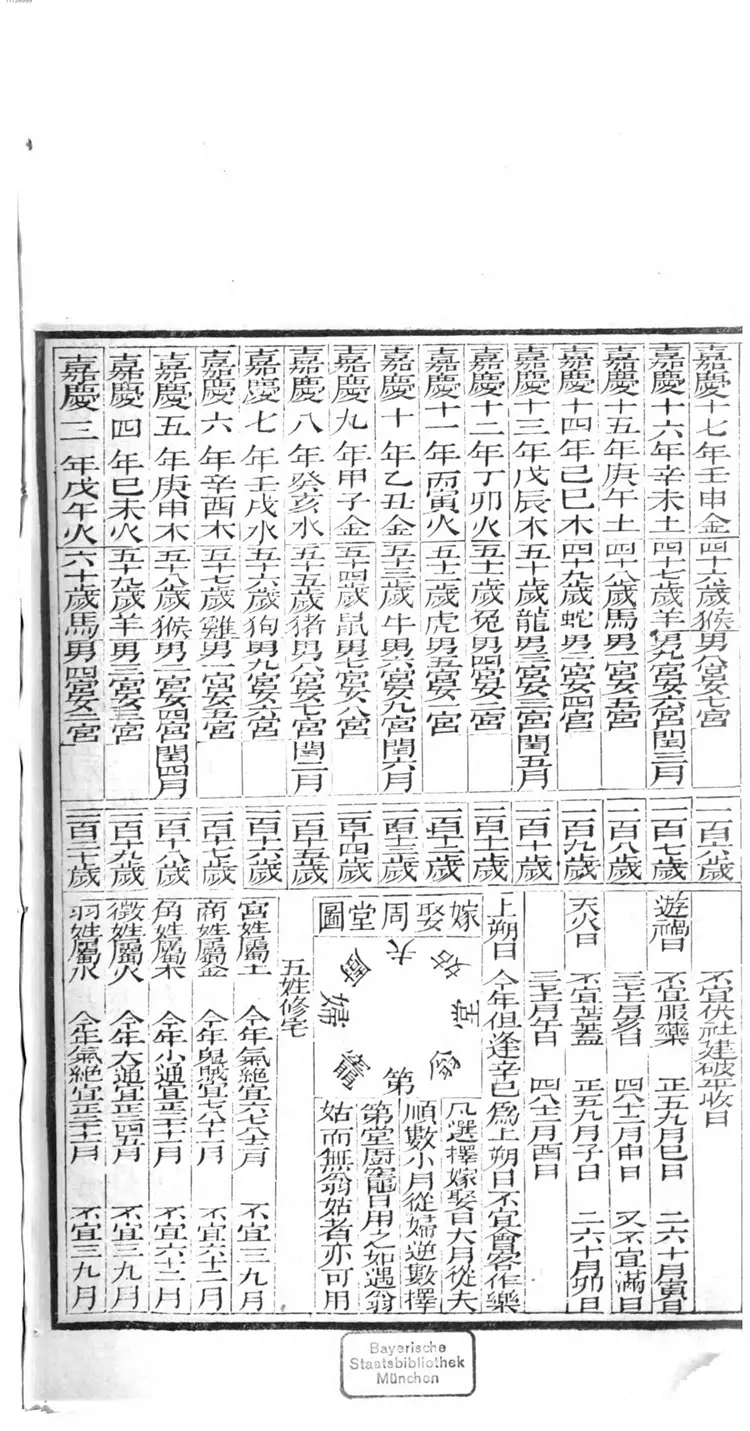 嘉慶十七年壬申金 四十六歲猴男八宮女七宮
嘉慶十六年辛未土 四十七歲羊男九宮女六宮閏三月
嘉慶十五年庚午土 四十八歲馬男一宮女五宮
嘉慶十四年己巳木 四十九歲蛇男二宮女四宮
嘉慶十三年戊辰木 五十歲龍男三宮女三宮閏五月
嘉慶十二年丁卯火 五十一歲兔男四宮女二宮
嘉慶十一年丙寅火 五十二歲虎男五宮女一宮
嘉慶十年乙丑金 五十三歲牛男六宮女九宮閏六月
嘉慶九年甲子金 五十四歲鼠男七宮女八宮
嘉慶八年癸亥水 五十五歲猪男八宮女七宮閏二月
嘉慶七年壬戌水 五十六歲狗男九宮女六宮
嘉慶六年辛酉木 五十七歲雞男一宮女五宮
嘉慶五年庚申木 五十八歲猴男二宮女四宮閏四月
嘉慶四年巳未火 五十九歲羊男三宮女三宮
嘉慶三年戊午火 六十歲馬男四宮女二宮
一百六歲
一百七歲
一百八歲
一百九歲
一百十歲
一百十一歲
一百十二歲
一百十三歲
一百十四歲
一百十五歲
一百十六歲
一百十七歲
一百十八歲
一百十九歲
一百二十歲
不宜伏社建破平收日
遊禍日 不宜服藥 正五九月巳日 二六十月寅日
三七十一月亥日 四八十二月申日 又不宜滿日
天火日 不宜苫蓋 正五九月子日 二六十月卯日
三七十一月午日 四八十二月酉日
上朔日 今年但逢辛巳爲上朔日不宜會客作樂
嫁娶周堂圖
夫
姑
堂
翁
第
竈
婦
廚
凡選擇嫁娶日大月從夫
順數小月從婦逆數擇
第堂廚竈日用之如遇翁
姑而無翁姑者亦可用
五姓修宅
宮姓屬土 今年氣絕宜六七八十二月 不宜三九月
商姓屬金 今年鬼賊宜七八十一月 不宜六十二月
角姓屬木 今年小通宜正二十月 不宜六十二月
徵姓屬火 今年大通宜正二四五月 不宜三九月
羽姓屬水 今年氣絕宜正二十一月 不宜三九月
Bayerische
Staatsbibliothek
München